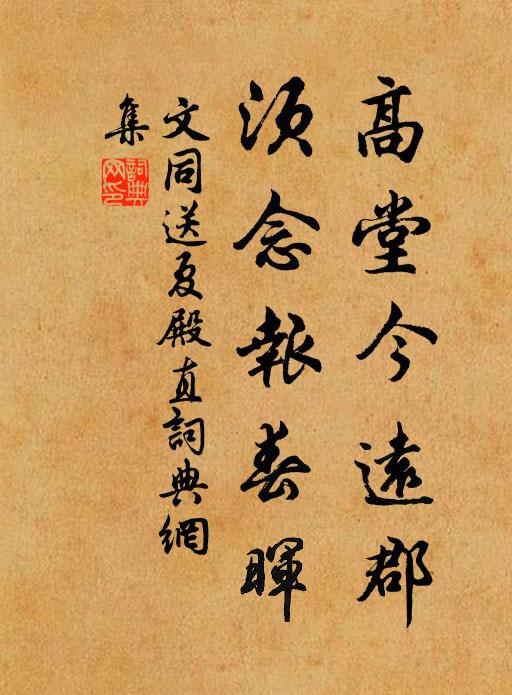 高堂今遠郡
須念報春暉
文同送夏殿直詞典網
集
詞典
网印